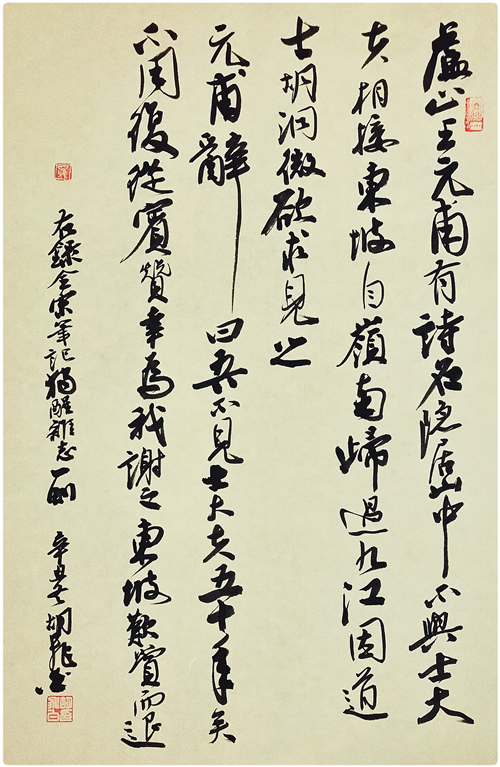 廬山王元甫有詩名隐居山中不與士大
夫相接東坡自嶺南歸過九江因道
士胡洞微欲求見之
元甫辭曰吾不見士大夫五十年矣
不用復從賓贊幸為我謝之東坡歎賞而退
右錄全宋筆記獨醒雜志一則 辛丑